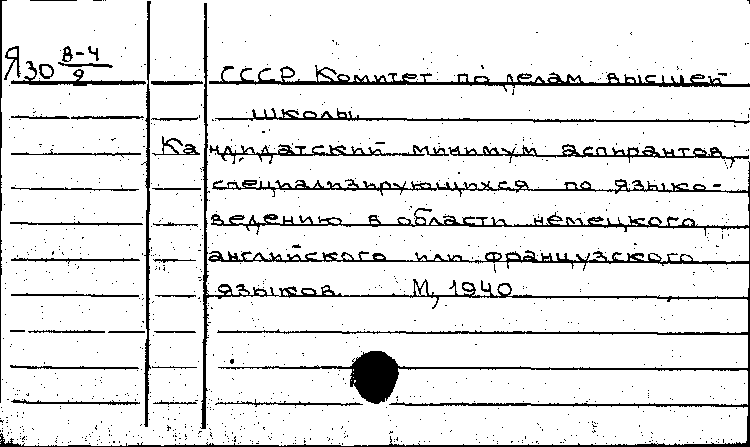 Я30 В-4/9
СССР. Комитет по делам высшей
школы.
Кандидатский минимум аспирантов,
специализирующихся по языко-
ведению в области немецкого,
английского или французского
языков. М, 1940